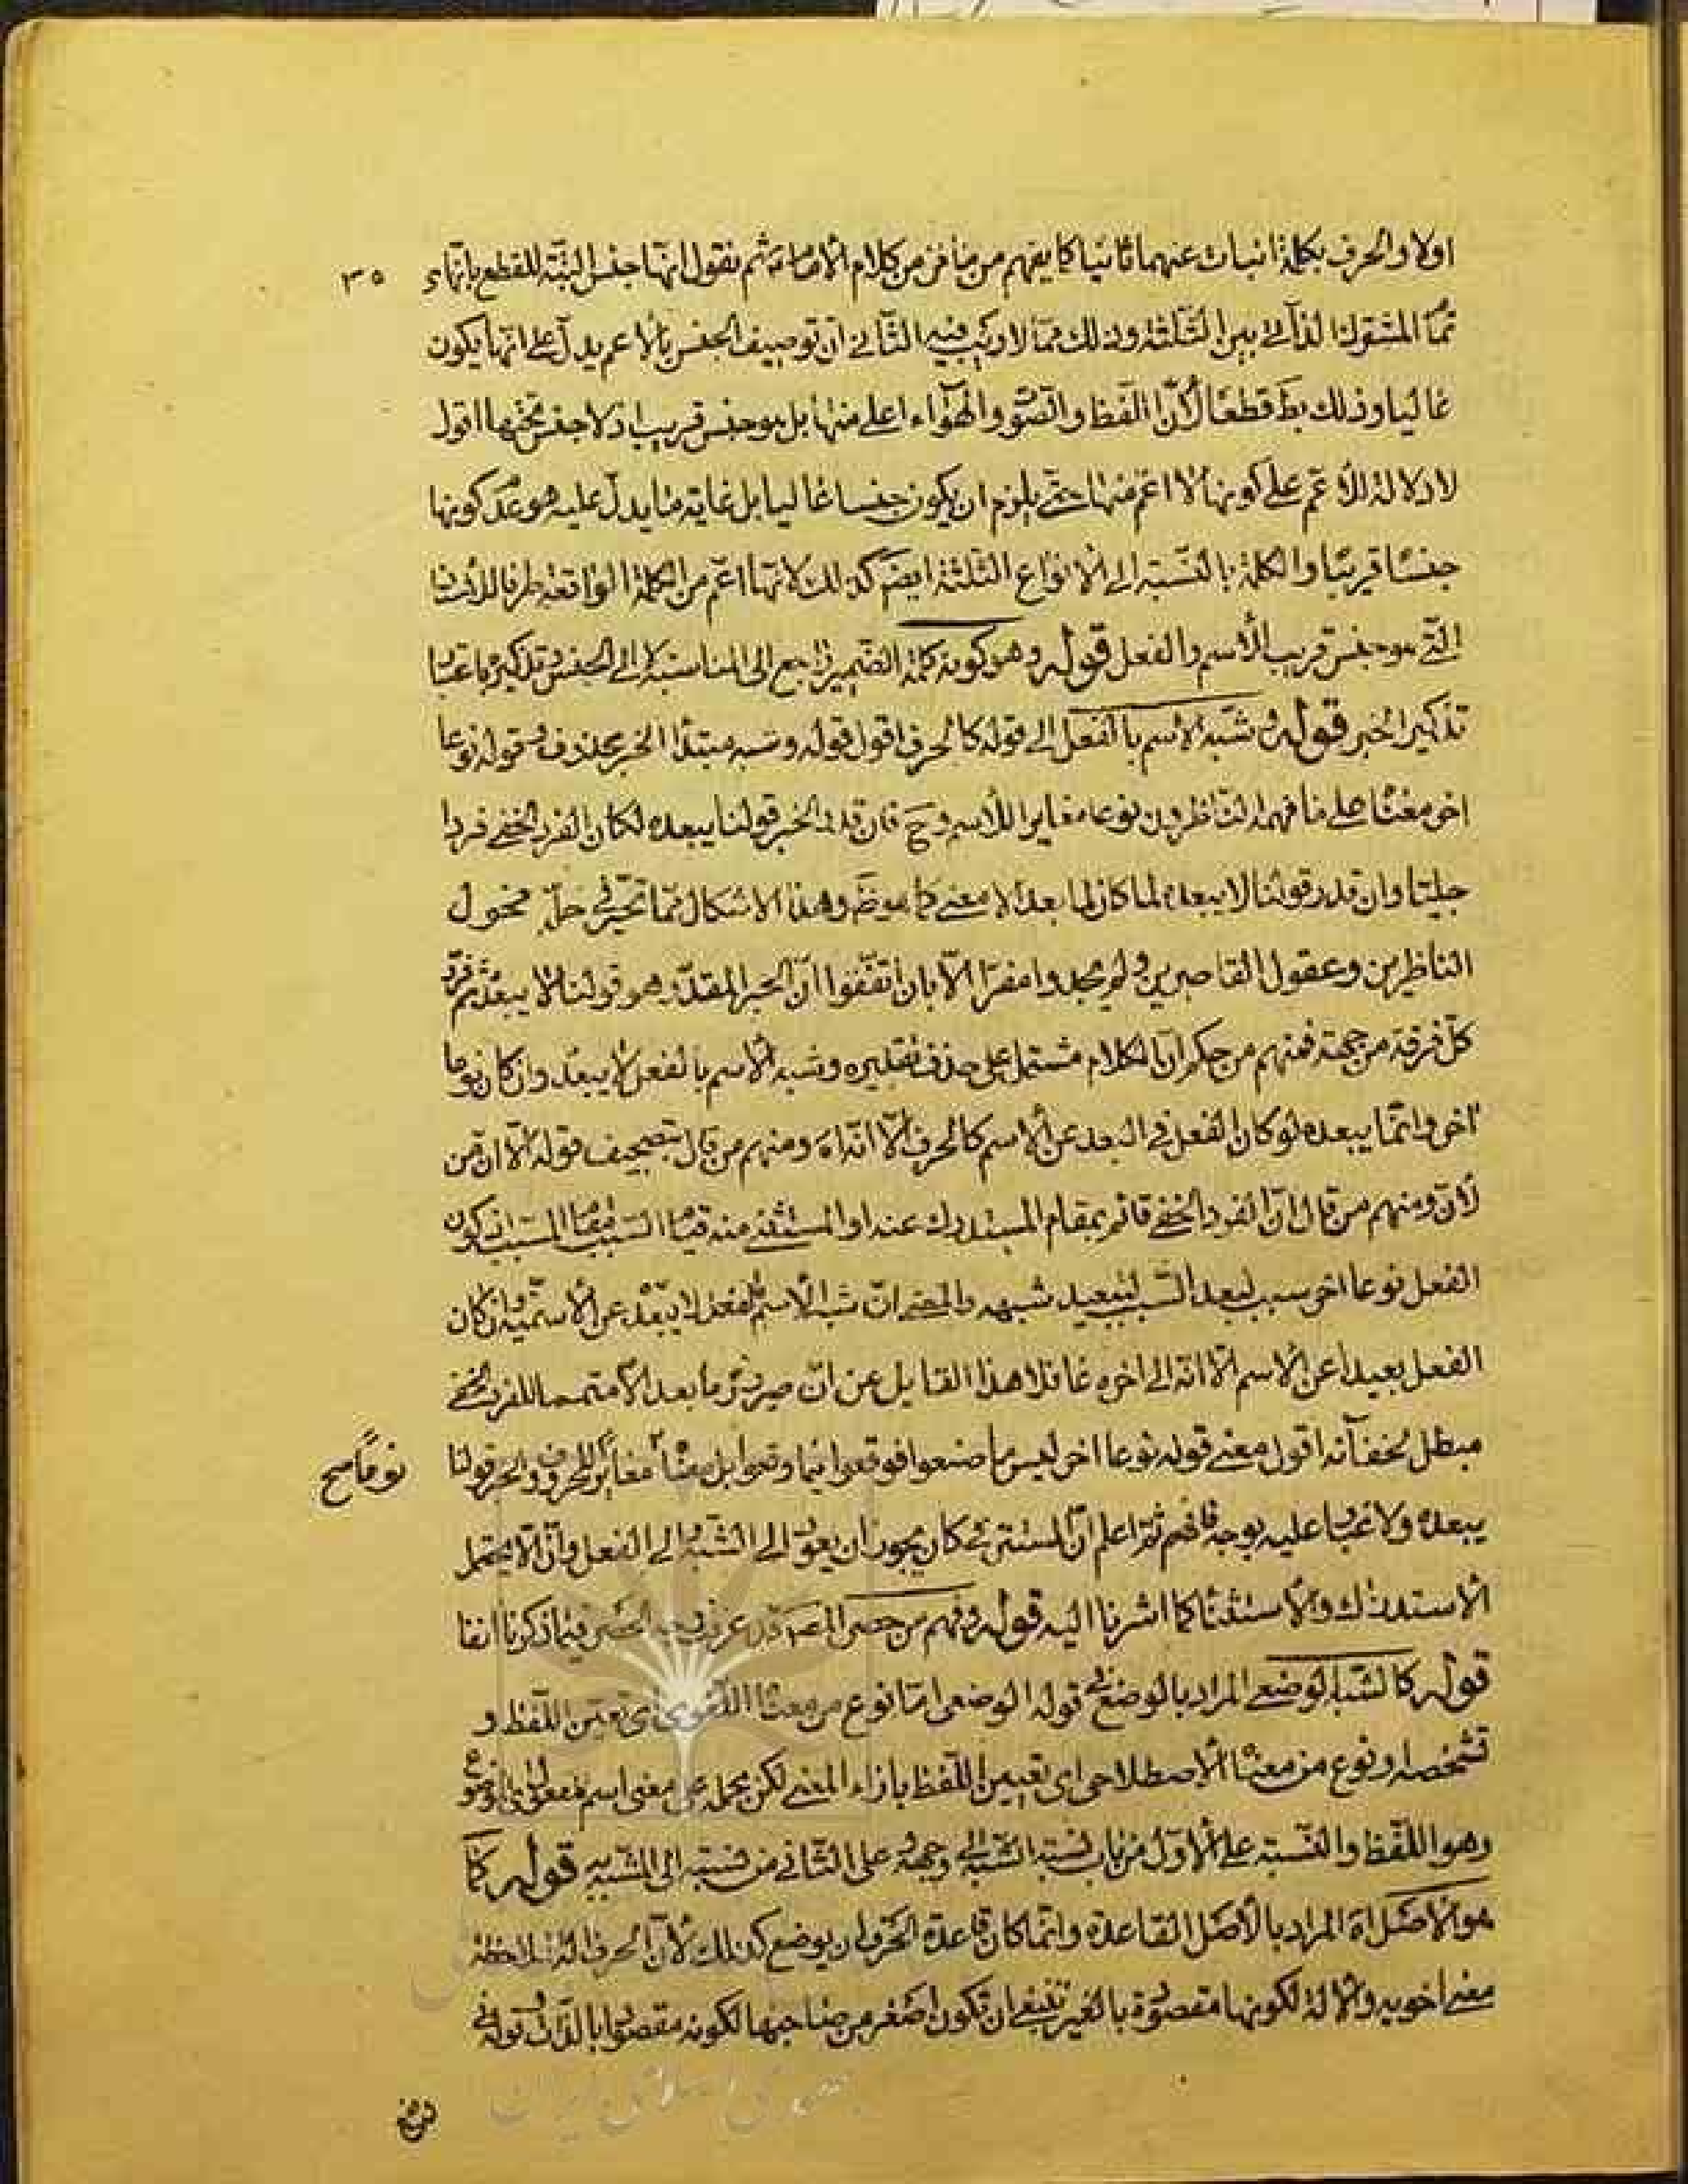 اولا والحرف بكلمة انبات عنهما ثانيا كما يفهم من كلام ثم نقول انها جنس البتة للقطع بانها
٣٥
المشقولة الذاتي بين الثلثة وذلك مما لا ريب فيه الثاني ان توصيف الجنس بالاعم يدل على انها يكون
غاليا وذلك بط قطعا لان اللفظ والصوت والهواء اعلى منها بل هو جنس قريب اذ لا جنس تحتها اقول
لا دلالة للاعم على كونها لا اعم منها حتى يلزم ان يكون جنسا غاليا بل غاية ما يدل عليه هو عدم كونها
جنسا قريبا والكلمة بالنسبة الى الانواع الثلثة ايضا كذلك لانها اعم من الكلمة الواقعة طرفا للاسناد
التي هو جنس قريب الاسم والفعل قوله وهو كونه كلمة الضمير راجع الى المناسبة لا الى الجنس وتذكيره باعتبار
تذكير الخبر قوله وشبه الاسم بالفعل الى قوله كالحرف اقول قوله وشبه مبتدا الخبر محذوف وقوله نوعا
اخر معنا على ما فهمه الناظرون نوعا مغايرا للاسم وح فان قدر الخبر قولنا يبعده لكان الفرد الخفي فردا
جليا وان قدر قولنا لا يبعده لما كان لما بعد الا معنى كما هو ظ وهذا الاشكال مما تحير في حله فحول
الناظرين وعقول القاصرين ولم يجدوا مفرا الا بان اتفقوا ان الخبر المقدر هو قولنا لا يبعده ثم فر
كل فرقة من جهة فمنهم من حكم ان الكلام مشتمل على حذف تقديره وشبه الاسم بالفعل لا يبعد وان كان نوعا
اخر وانما يبعده لو كان الفعل في البعد عن الاسم كالحرف الا انه اه ومنهم من قال بتصحيف قوله الا ان من
لان ومنهم من قال ان الفرد الخفي قائم بمقام المستدرك عنه او المستثنى منه قيام السبب مقام المسبب كون
الفعل نوعا اخر سبب لبعد السبب لتبعيد شبهه والمعنى ان شبه الاسم بالفعل لا يبعد عن الاسمية وان كان
الفعل بعيدا عن الاسم الا انه الى اخره غافلا هذا القايل عن ان صيرورة ما بعد الا متمما للفرد الخفي
مبطل لخفائه اقول معنى قوله نوعا اخر ليس ما صنعوا فوقعوا فيما وقعوا بل معناه مغاير للحرف والخبر قولنا
نوعا صح
يبعده ولا غبار عليه بوجه فافهم ثم اعلم ان المستتر في كان يجوز ان يعود الى الشبه والى الفعل وان الا يحتمل
الاستدراك والاستثناء كما اشرنا اليه قوله وفهم من حصر المص قد عرفت فيما ذكرنا انفا
قوله كالشبه الوضعي المراد بالوضع في قوله الوضعي اما نوع من معناه اللغوي اى تعيين اللفظ و
تشخصه او نوع من معناه الاصطلاحي اى تعيين اللفظ بازاء المعنى لكن يحمل على معنى اسم مفعول اى الموضوع
وهو اللفظ والنسبة على الاول من باب نسبة الشبه الى وجهه وعلى الثاني من نسبته الى المشبه به قوله كما
هو الاصل اه المراد بالاصل القاعدة وانما كان قاعدة الحرف ان يوضع كذلك لان الحرف الة لملاحظة
معنى اخويه والالة لكونها مقصودة بالغير ينبغي ان تكون اصغر من صاحبها لكونه مقصودا بالذات قوله في